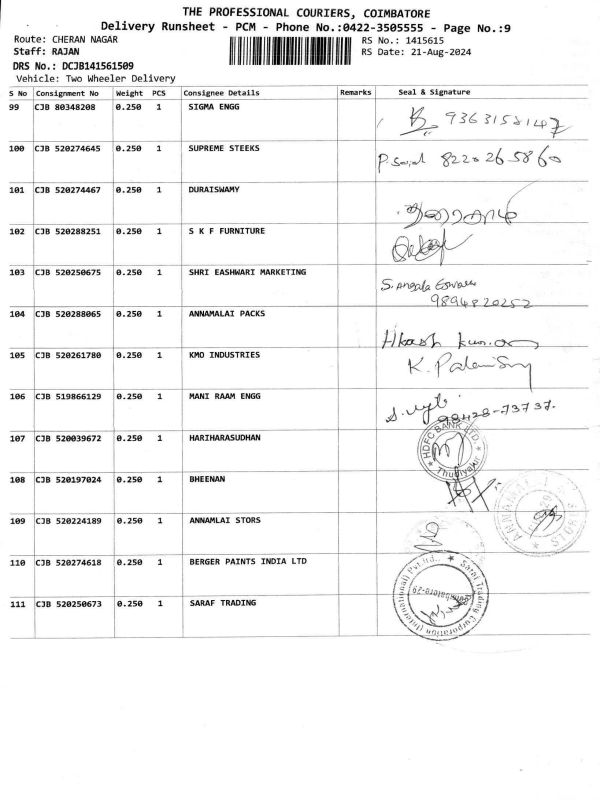 THE PROFESSIONAL COURIERS, COIMBATORE
Delivery Runsheet - PCM - Phone No.:0422-3505555 - Page No.:9
Route: CHERAN NAGAR RS No.: 1415615
Staff: RAJAN RS Date: 21-Aug-2024
DRS No.: DCJB141561509
Vehicle: Two Wheeler Delivery
S No Consignment No Weight PCS Consignee Details Remarks Seal & Signature
99 CJB 80348208 0.250 1 SIGMA ENGG 9363158147
100 CJB 520274645 0.250 1 SUPREME STEEKS 8220265860
101 CJB 520274467 0.250 1 DURAISWAMY
102 CJB 520288251 0.250 1 S K F FURNITURE
103 CJB 520250675 0.250 1 SHRI EASHWARI MARKETING S. Angala
9894820252
104 CJB 520288065 0.250 1 ANNAMALAI PACKS
105 CJB 520261780 0.250 1 KMO INDUSTRIES K. Palani
106 CJB 519866129 0.250 1 MANI RAAM ENGG 98428-73737.
107 CJB 520039672 0.250 1 HARIHARASUDHAN HDFC BANK LTD. * Thudiyalur *
108 CJB 520197024 0.250 1 BHEENAN
109 CJB 520224189 0.250 1 ANNAMLAI STORS
110 CJB 520274618 0.250 1 BERGER PAINTS INDIA LTD
111 CJB 520250673 0.250 1 SARAF TRADING Saraf Trading Corporation (International) Pvt.ltd., * Coimbatore-29